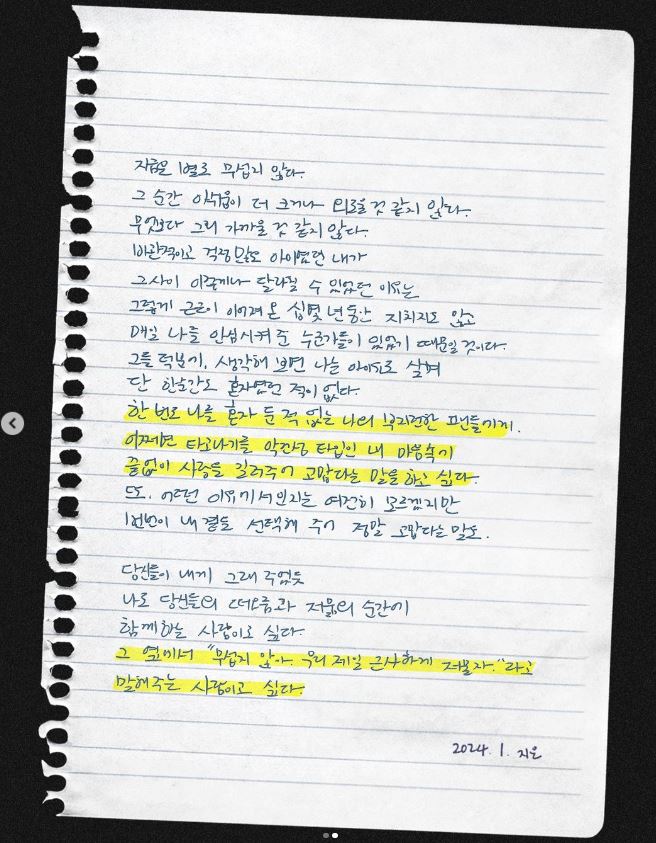 지금은 별로 무섭지 않다.
그 순간 아쉬움이 더 크거나 외로울 것 같지 않다.
무엇보다 그리 가까울 것 같지 않다.
비관적이고 걱정 많던 아이였던 내가
그사이 이렇게나 달라질 수 있었던 이유는
그렇게 근근이 이어져 온 십몇 년 동안 지치지도 않고
매일 나를 안심시켜 준 누군가들이 있었기 때문일 것이다.
그들 덕분에, 생각해 보면 나는 아이유로 살며
단 한순간도 혼자였던 적이 없다.
한 번도 나를 혼자 둔 적 없는 나의 부지런한 팬들에게.
어쩌면 타고나기를 악건성 타입인 내 마음속에
끝없이 사랑을 길러주어 고맙다는 말을 하고 싶다.
또, 어떤 이유에서인지는 여전히 모르겠지만
1번번이 내 곁을 선택해 주어 정말 고맙다는 말도.
당신들이 내게 그래 주었듯
나도 당신들의 떠오름과 저묾의 순간에
함께하는 사람이고 싶다.
그 옆에서 "무섭지 않아. 우리 제일 근사하게 저물자." 라고
말해주는 사람이고 싶다.
2024. 1. 지은